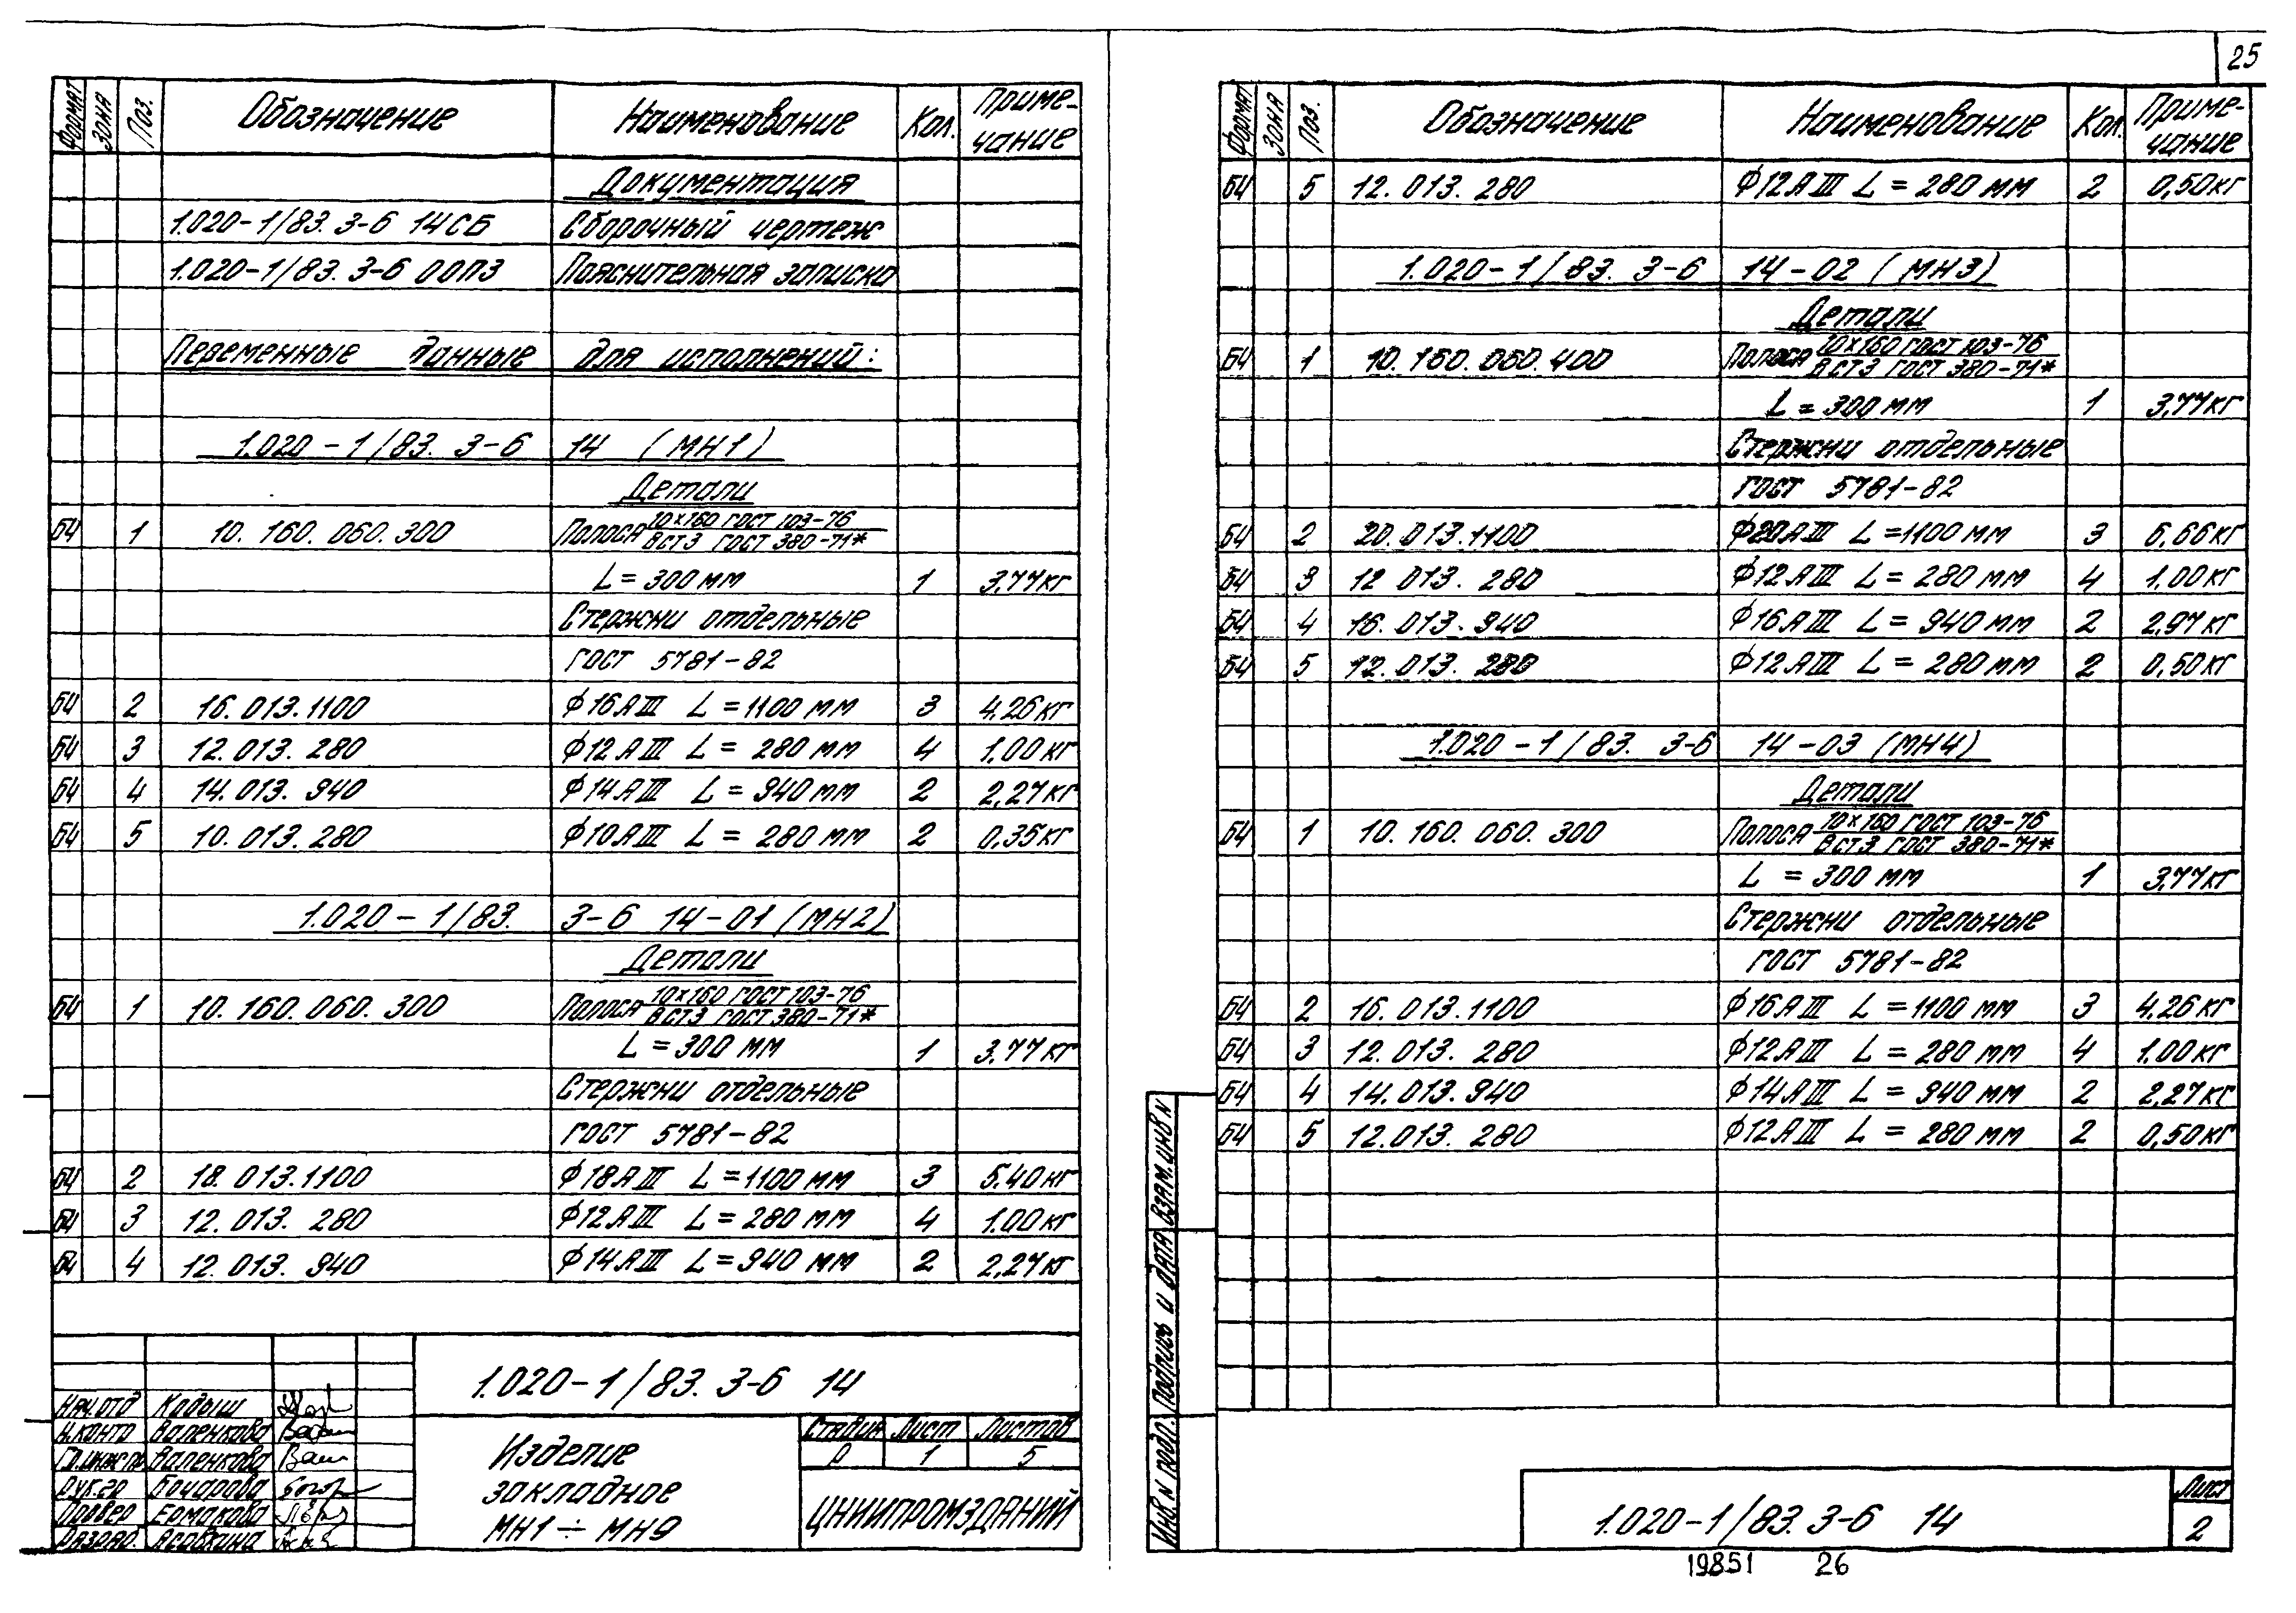 25
Формат Зона Поз. Обозначение Наименование Кол. Приме-
чание
Документация
1.020-1/83. 3-6 14СБ Сборочный чертеж
1.020-1/83. 3-6 00ПЗ Пояснительная записка
Переменные данные для исполнений:
1.020-1/83. 3-6 14 (МН1)
Детали
БЧ 1 10.160.060.300 Полоса 10×160 ГОСТ 103-76
ВСТ3 ГОСТ 380-71*
L=300мм 1 3,77кг
Стержни отдельные
ГОСТ 5781-82
БЧ 2 16.013.1100 ф16АIII L=1100мм 3 4,26кг
БЧ 3 12.013.280 ф12АIII L=280мм 4 1,00кг
БЧ 4 14.013.940 ф14АIII L=940мм 2 2,27кг
БЧ 5 10.013.280 ф10АIII L=280мм 2 0,35кг
1.020-1/83. 3-6 14-01 (МН2)
Детали
БЧ 1 10.160.060.300 Полоса 10×160 ГОСТ 103-76
ВСТ3 ГОСТ 380-71*
L=300мм 1 3,77кг
Стержни отдельные
ГОСТ 5781-82
БЧ 2 18.013.1100 ф18АIII L=1100мм 3 5,40кг
БЧ 3 12.013.280 ф12АIII L=280мм 4 1,00кг
БЧ 4 12.013.940 ф14АIII L=940мм 2 2,27кг
1.020-1/83. 3-6 14
Нач.отд Кодыш
Н.контр Валенкова
Гл.инж.пр. Валенкова
Рук.гр Бочарова
Провер Ермакова
Разраб.
Изделие
закладное
МН1÷МН9
Стадия Лист Листов
Р 1 5
ЦНИИПРОМЗДАНИЙ
Формат Зона Поз. Обозначение Наименование Кол. Приме-
чание
БЧ 5 12.013.280 ф12АIII L=280мм 2 0,50кг
1.020-1/83. 3-6 14-02 (МН3)
Детали
БЧ 1 10.160.060.400 Полоса 10×160 ГОСТ 103-76
ВСТ3 ГОСТ 380-71*
L=300мм 1 3,77кг
Стержни отдельные
ГОСТ 5781-82
БЧ 2 20.013.1100 ф20АIII L=1100мм 3 6,66кг
БЧ 3 12.013.280 ф12АIII L=280мм 4 1,00кг
БЧ 4 16.013.940 ф16АIII L=940мм 2 2,97кг
БЧ 5 12.013.280 ф12АIII L=280мм 2 0,50кг
1.020-1/83. 3-6 14-03 (МН4)
Детали
БЧ 1 10.160.060.300 Полоса 10×160 ГОСТ 103-76
ВСТ3 ГОСТ 380-71*
L=300мм 1 3,77кг
Стержни отдельные
ГОСТ 5781-82
БЧ 2 16.013.1100 ф16АIII L=1100мм 3 4,26кг
БЧ 3 12.013.280 ф12АIII L=280мм 4 1,00кг
БЧ 4 14.013.940 ф14АIII L=940мм 2 2,27кг
БЧ 5 12.013.280 ф12АIII L=280мм 2 0,50кг
Инв.N подл. Подпись и дата Взам.инв N
1.020-1/83. 3-6 14
Лист
2
19851 26